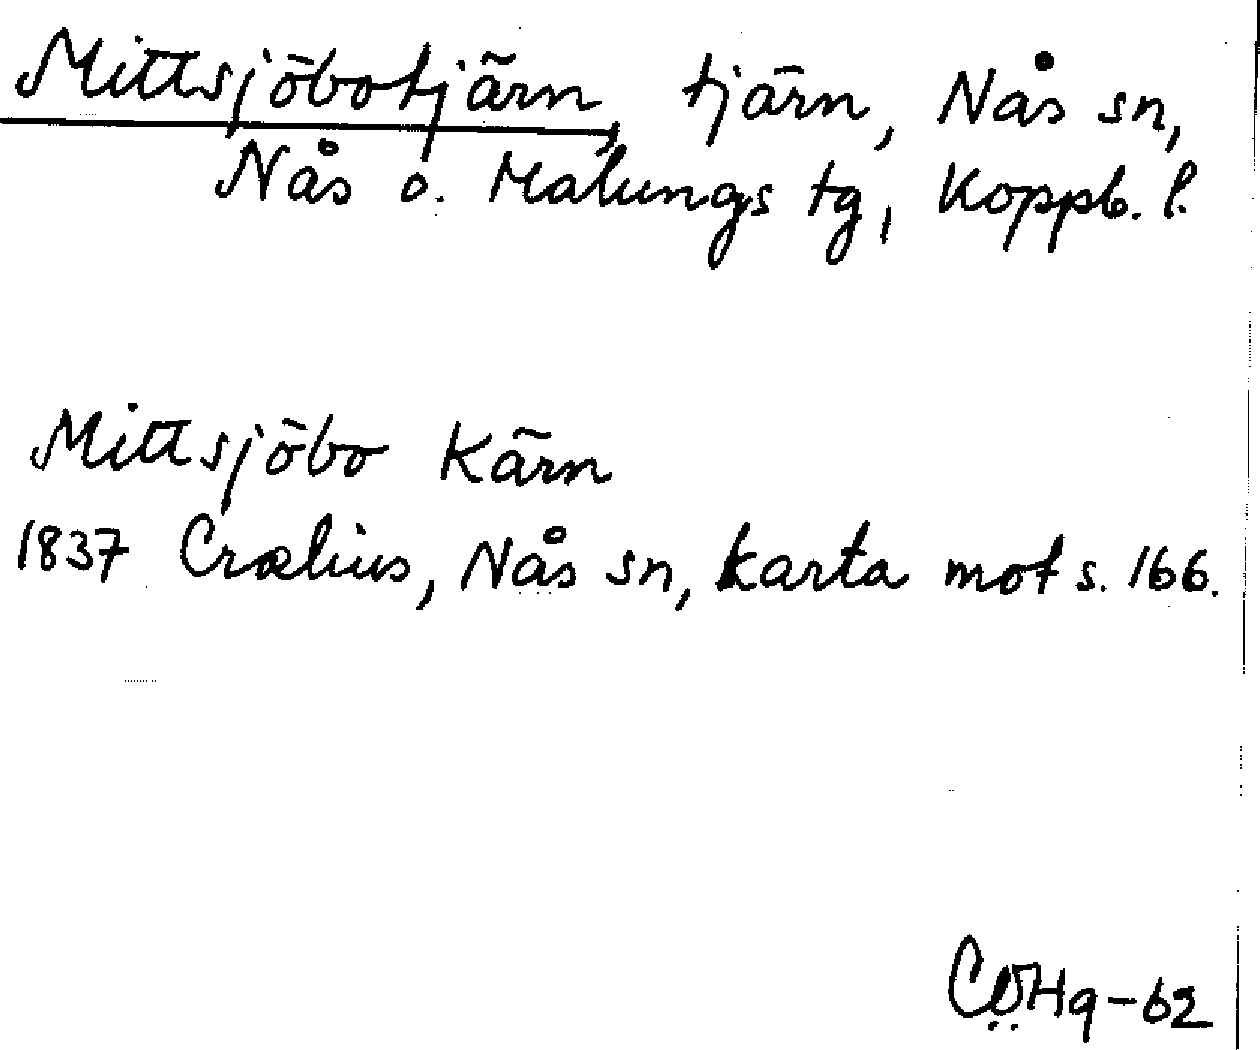 Mittsjöbotjärn, tjärn, Nås sn,
Nås o. Malungs tg, Koppb. l.
Mittsjöbo Kärn
1837 Crælius, Nås sn, karta mot s. 166.